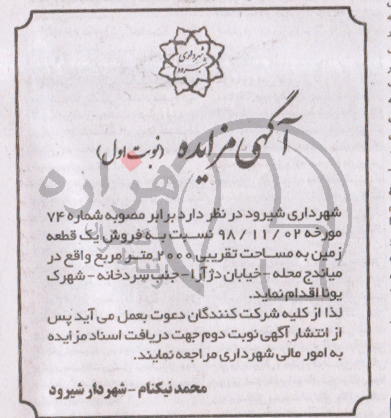 شهرداری
شیرود
آگهی مزایده (نوبت اول)
هزاره
شهرداری شیرود در نظر دارد برابر مصوبه شماره ۷۴
مورخه ۰۲ / ۱۱ / ۹۸ نسبت به فروش یک قطعه
زمین به مساحت تقریبی ۲۰۰۰ متر مربع واقع در
میاندج محله - خیابان دژآرا - جنب سردخانه - شهرک
پونا اقدام نماید.
لذا از کلیه شرکت کنندگان دعوت بعمل می آید پس
از انتشار آگهی نوبت دوم جهت دریافت اسناد مزایده
به امور مالی شهرداری مراجعه نمایند.
محمد نیکنام - شهردار شیرود